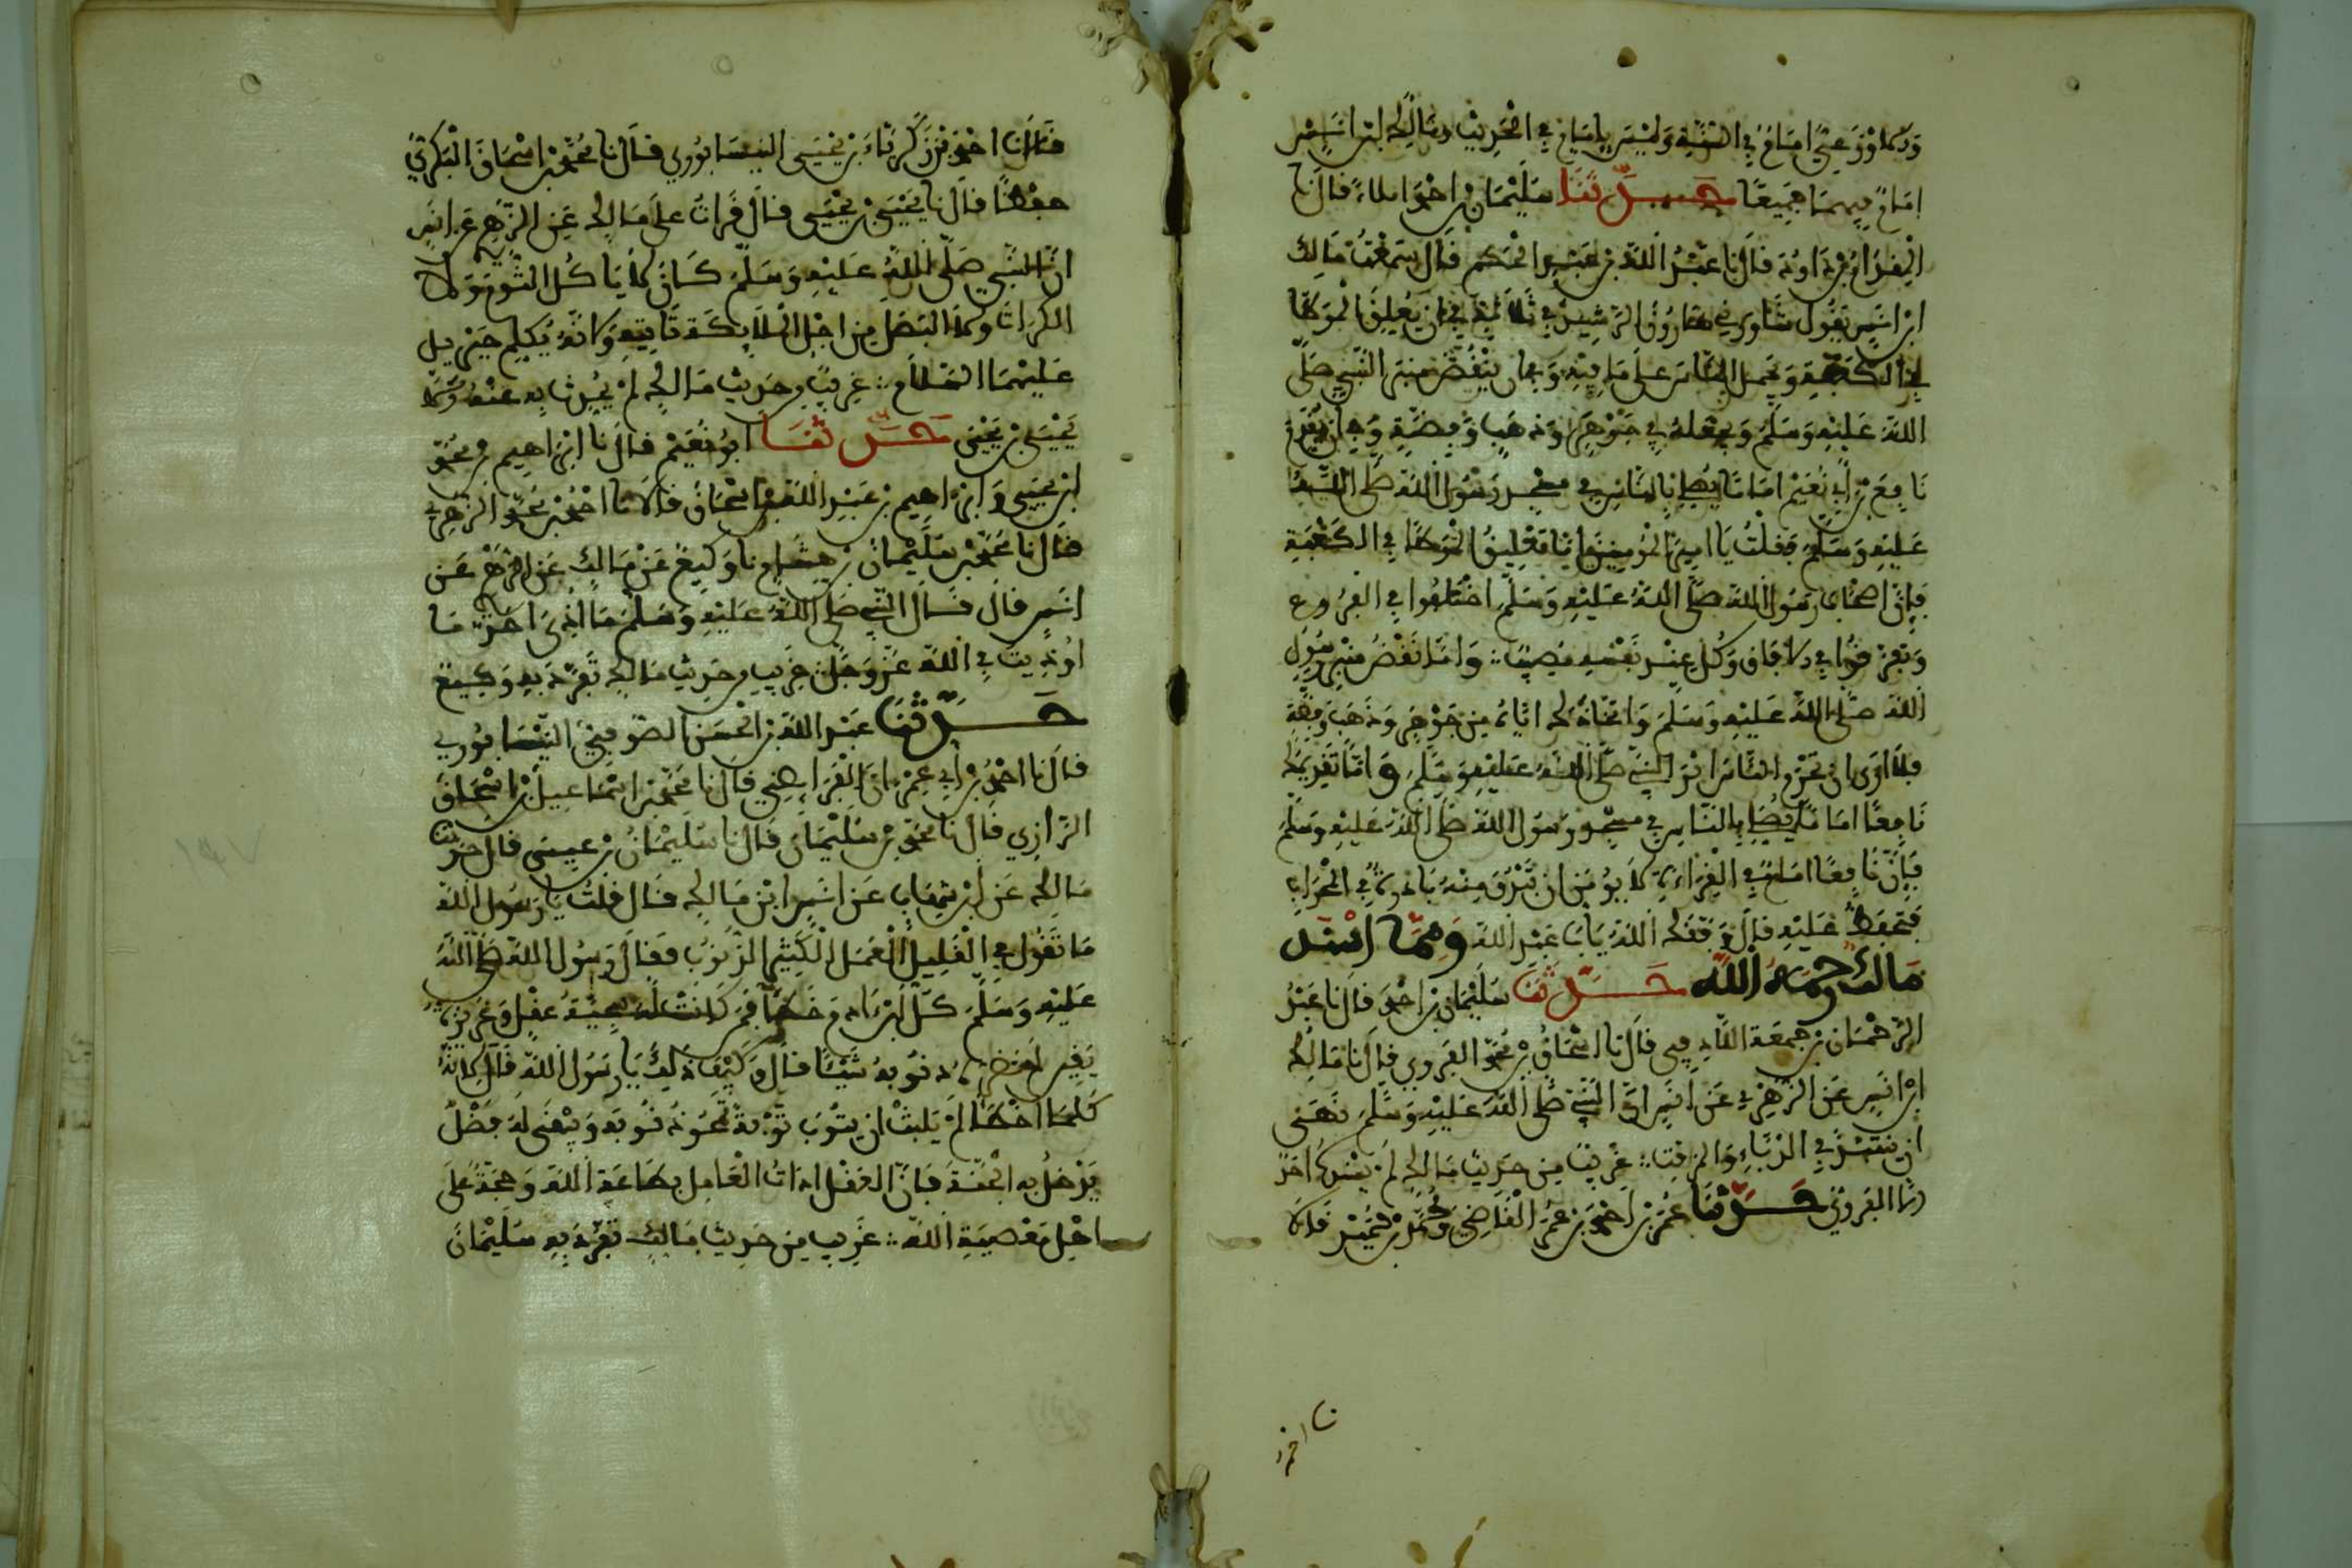 والاوزعي امام في السنة وليس بإمام في الحديث ومالك بن انس
امام فيهما جميعا حدثنا سليمان بن احمد املاء قال نا
المقدام بن داود قال نا عبد الله بن عبد الحكم قال سمعت مالك
ابن انس يقول شاورني هارون الرشيد في ثلاثة في ان يعلق الموطا
في الكعبة ويحمل الناس على ما فيه وفي ان ينقض منبر النبي صلى
الله عليه وسلم ويجعله في جوهر او ذهب وفضة وفي ان يقدم
نافع بن ابي نعيم اماما يصلي بالناس في مسجد رسول الله صلى الله
عليه وسلم فقلت يا امير المومنين اما تعليق الموطا في الكعبة
فإن اصحاب رسول الله صلى الله عليه وسلم اختلفوا في الفروع
وتفرقوا في الافاق وكل عند نفسه مصيب واما نقض منبر رسول
الله صلى الله عليه وسلم واتخاذك اياه من جوهر وذهب وفضة
فلا ارى ان تحرم الناس اثر النبي صلى الله عليه وسلم واما تقديمك
نافعا اماما يصلي بالناس في مسجد رسول الله صلى الله عليه وسلم
فإن نافعا امام في القراءة لا يومن ان تندر منه بادرة في المحراب
فتحفظ عليه قال وفقك الله يابا عبد الله ومما اسند
مالك رحمه الله حدثنا سليمان بن احمد قال نا عبد
الرحمان بن جمعة اللاذقي قال نا اسحاق بن محمد الفروي قال نا مالك
ابن انس عن الزهري عن انس ان النبي صلى الله عليه وسلم نهى
ان ينتبذ في الدباء والمزفت غريب من حديث مالك لم يسنده احد
الا الفروي حدثنا عمر بن احمد بن عمر القاضي ومحمد بن حميد قالا
نا احمد
قالا نا احمد بن زكرياء بن يحيى النيسابوري قال نا محمد بن اسحاق البكري
حفظا قال نا يحيى بن يحيى قال قرات على مالك عن الزهري عن انس
ان النبي صلى الله عليه وسلم كان لا ياكل الثوم ولا
الكراث ولا البصل من اجل الملايكة تاتيه وانه يكلم جبريل
عليهما السلام غريب من حديث مالك لم يحدث به عنه الا
يحيى بن يحيى حدثنا ابو نعيم قال نا ابراهيم بن محمد
ابن يحيى وابراهيم بن عبد الله بن اسحاق قالا نا احمد بن محمد الازهري
قال نا محمد بن سليمان بن هشام نا وكيع عن مالك عن الزهري عن
انس قال قال النبي صلى الله عليه وسلم ما اذي احد ما
اوذيت في الله عز وجل غريب من حديث مالك تفرد به وكيع
حدثنا عبد الله بن الحسن الصوفي النيسابوري
قال نا احمد بن ابي عمران الفرايضي قال نا محمد بن اسماعيل بن اسحاق
الرازي قال نا محمد بن سليمان قال نا سليمان بن عيسى قال حدثنا
مالك عن ابن شهاب عن انس ابن مالك قال قلت يا رسول الله
ما تقول في القليل العمل الكثير الذنوب فقال رسول الله صلى الله
عليه وسلم كل ابن ءادم خطا فمن كانت له سجية عقل وغريزة
يقين لم تضره ذنوبه شيئا قال وكيف ذلك يا رسول الله قال لانه
كلما اخطا لم يلبث ان يتوب توبة تمحو ذنوبه ويبقى له فضل
يدخل به الجنة فان العقل اداة العامل بطاعة الله وحجة على
اهل معصية الله غريب من حديث مالك تفرد به سليمان